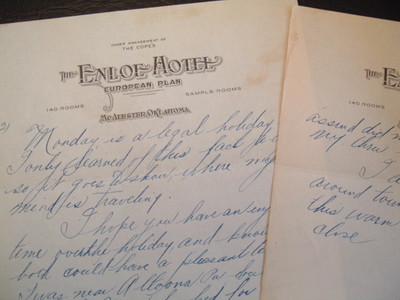 UNDER MANAGEMENT OF
THE COPES
THE ENLOE HOTEL
EUROPEAN PLAN
140 ROOMS
SAMPLE ROOMS
MCALESTER, OKLAHOMA
Monday is a legal holiday
I only learned of this fact
so it goes to show, where my
mind is traveling.
I hope you have an enj
time over the holiday and know
both could have a pleasant
I was near Altoona Pa
for
THE
140 ROOMS
my
around tow
this warm
close